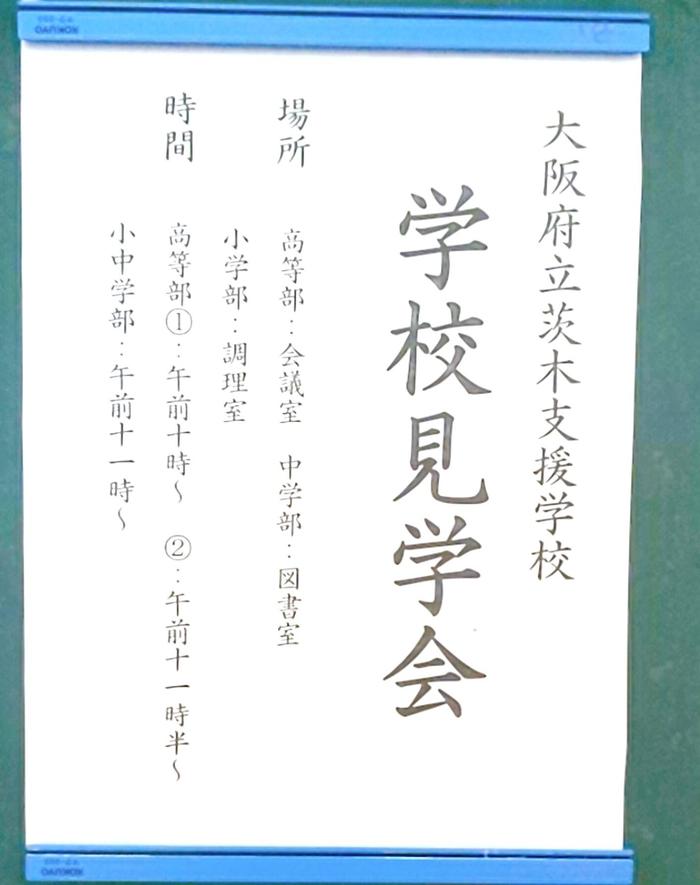 大阪府立茨木支援学校
学校見学会
場所　高等部：会議室　中学部：図書室
小学部：調理室
時間　高等部①：午前十時～　②：午前十一時半～
小中学部：午前十一時～
KOKUYO
KOKUYO